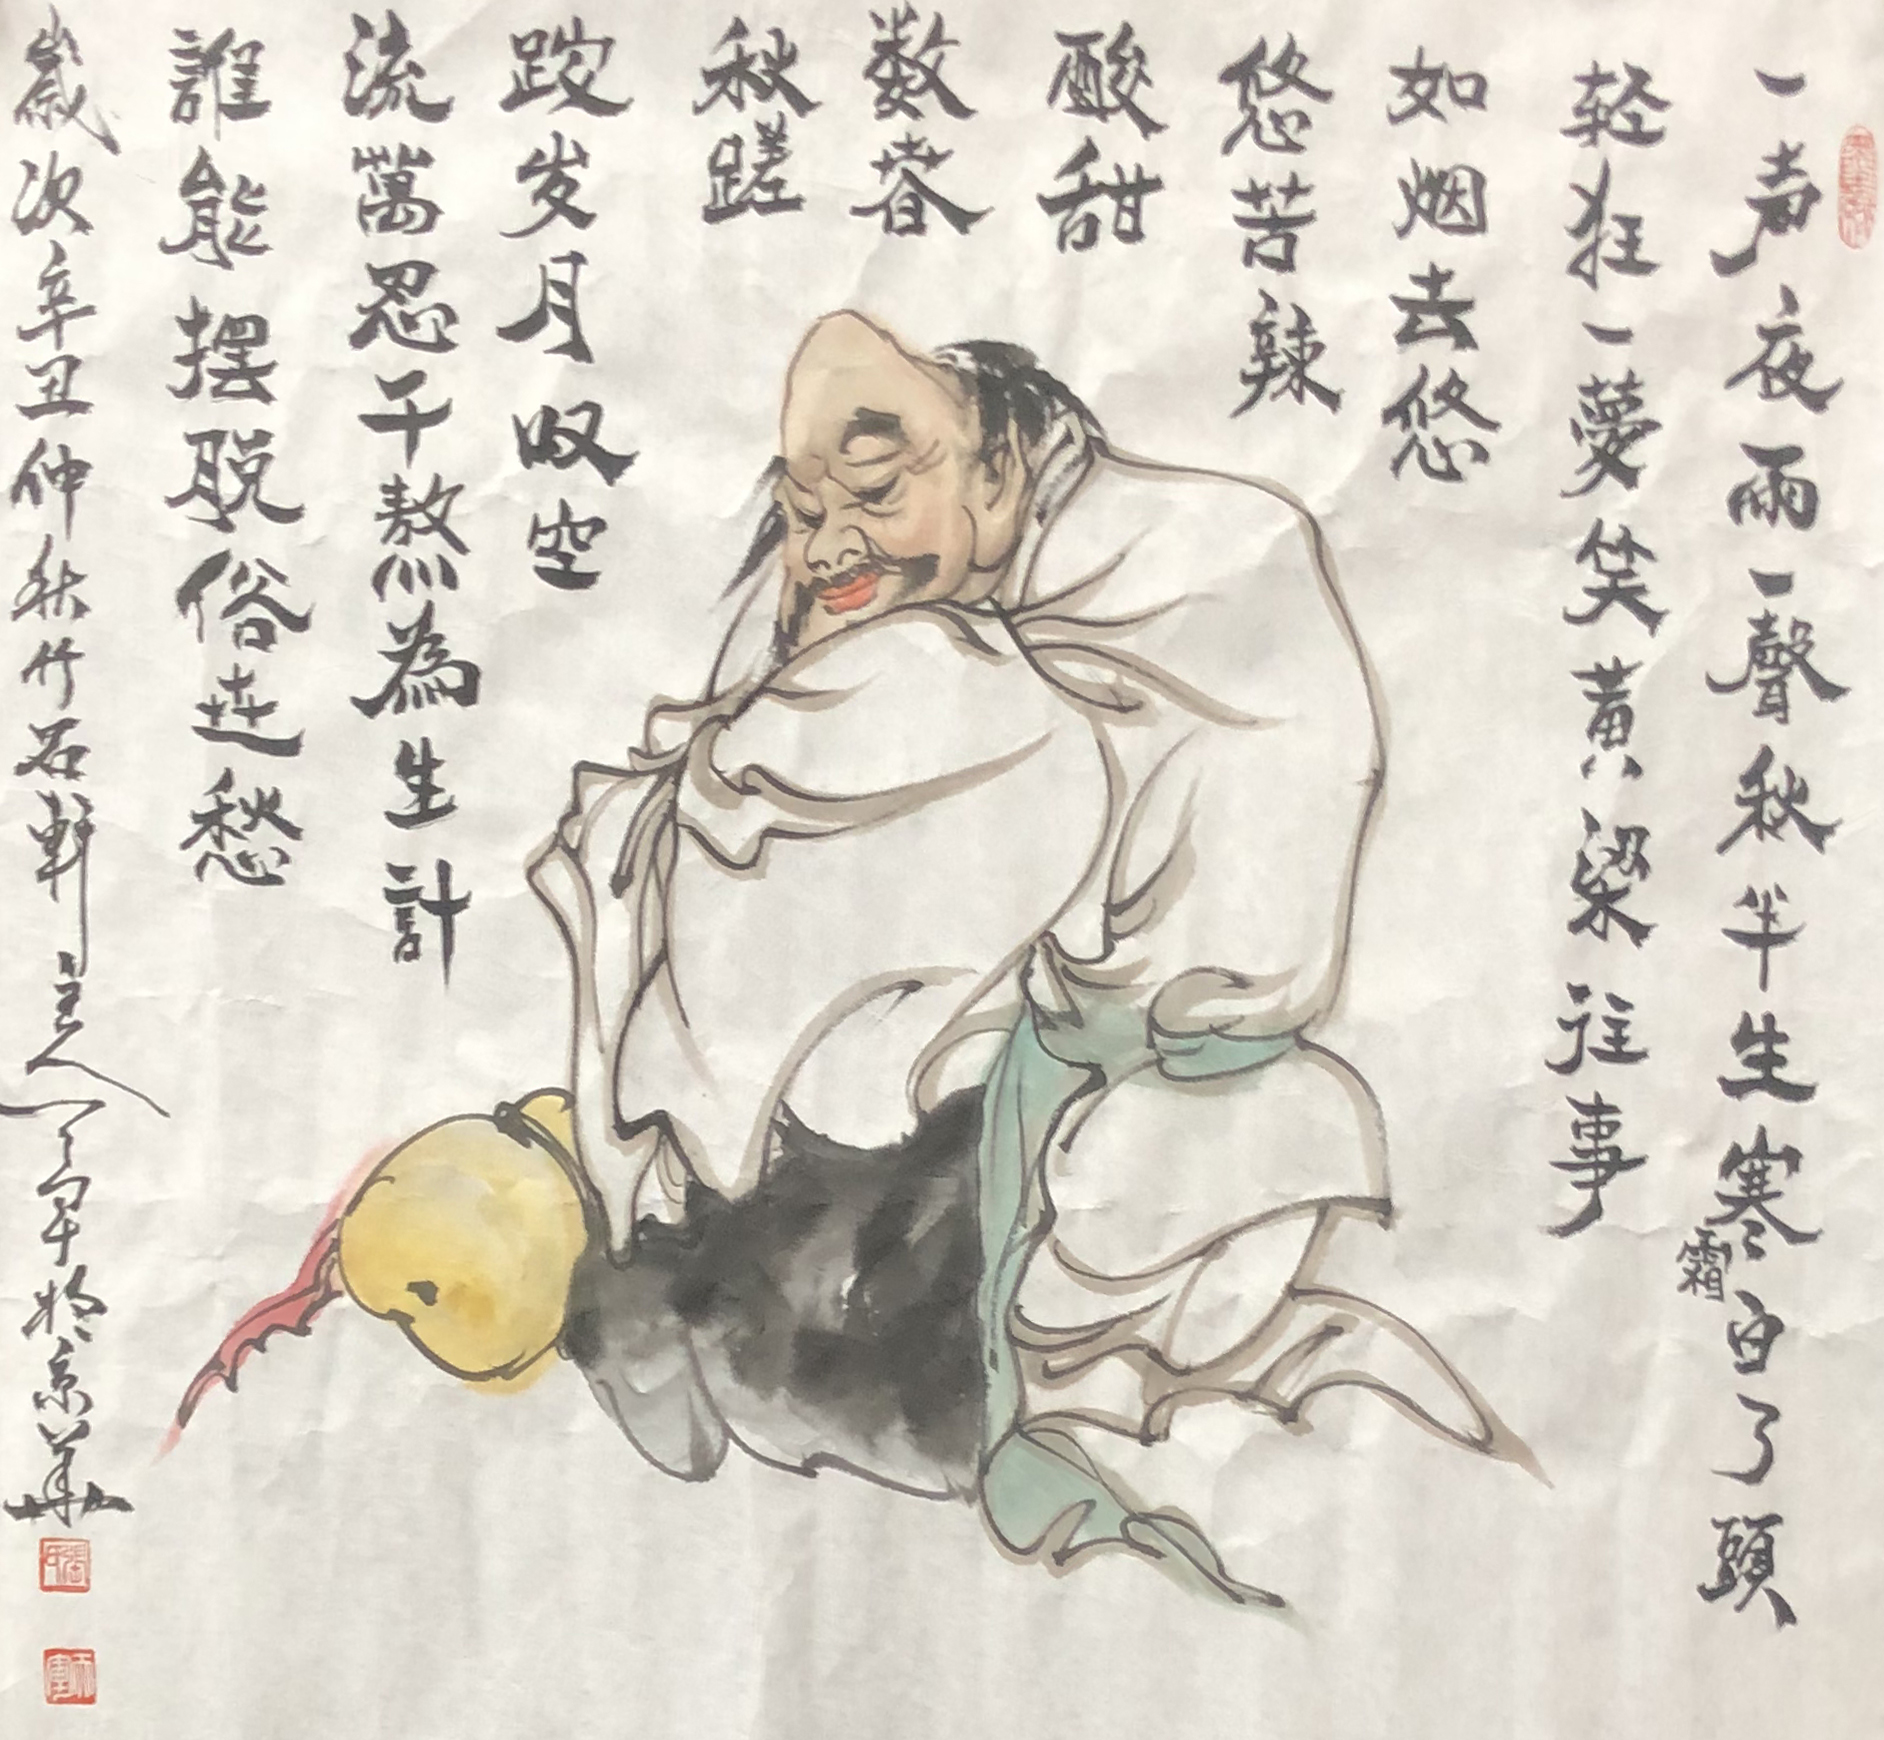 一声夜雨一聲秋半生寒白了頭
霜
轻狂一夢笑黄梁往事
如烟去悠
悠苦辣
酸甜
数春
秋蹉
跎岁月叹空
流萬忍千熬為生計
誰能摆脱俗世愁
歲次辛丑仲秋竹石軒主人军於京華